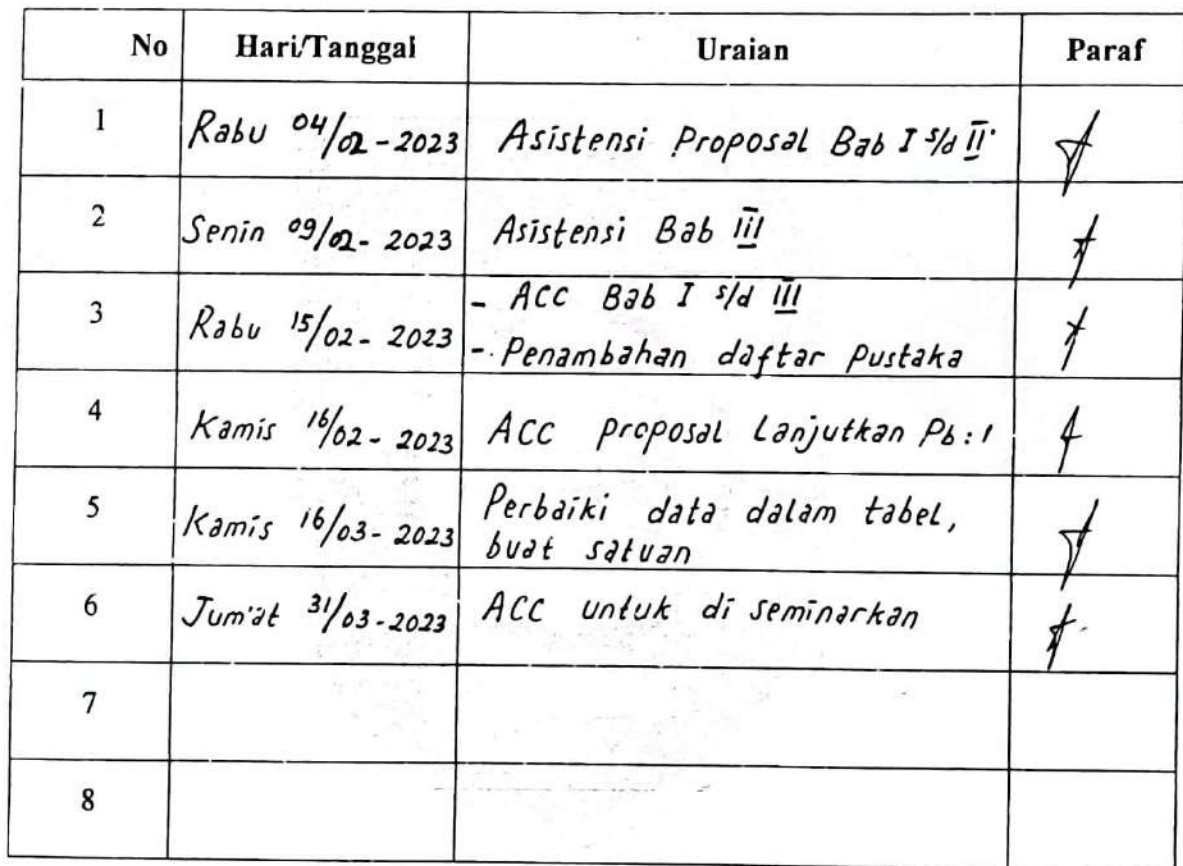 No Hari/Tanggal Uraian Paraf
1 Rabu 04/02-2023 Asistensi Proposal Bab I s/d II
2 Senin 09/02-2023 Asistensi Bab III
3 Rabu 15/02-2023 - ACC Bab I s/d III
- Penambahan daftar Pustaka
4 Kamis 16/02-2023 ACC proposal Lanjutkan Pb:1
5 Kamis 16/03-2023 Perbaiki data dalam tabel,
buat satuan
6 Jum'at 31/03-2023 ACC untuk di seminarkan
7
8